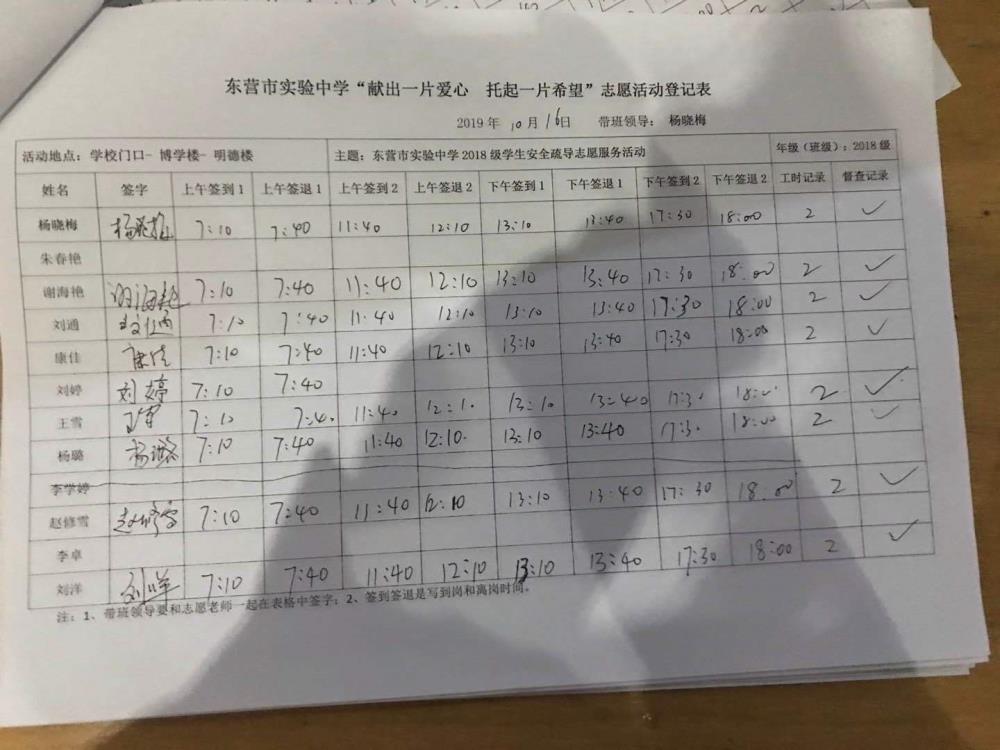 东营市实验中学“献出一片爱心 托起一片希望”志愿活动登记表
2019年 10月16日 带班领导：杨晓梅
活动地点：学校门口- 博学楼- 明德楼 主题：东营市实验中学2018级学生安全疏导志愿服务活动 年级（班级）：2018级
姓名 签字 上午签到1 上午签退1 上午签到2 上午签退2 下午签到1 下午签退1 下午签到2 下午签退2 工时记录 督查记录
杨晓梅 杨晓梅 7:10 7:40 11:40 12:10 13:10 13:40 17:30 18:00 2 ✓
朱春艳
谢海艳 谢海艳 7:10 7:40 11:40 12:10 13:10 13:40 17:30 18:00 2 ✓
刘通 7:10 7:40 11:40 12:10 13:10 13:40 17:30 18:00 2 ✓
康佳 康佳 7:10 7:40 11:40 12:10 13:10 13:40 17:30 18:00 2 ✓
刘婷 刘婷 7:10 7:40
王雪 王雪 7:10 7:40 11:40 12:10 13:10 13:40 17:30 18:00 2 ✓
杨璐 杨璐 7:10 7:40 11:40 12:10 13:10 13:40 17:30 18:00 2 ✓
李学婷
赵修雪 赵修雪 7:10 7:40 11:40 12:10 13:10 13:40 17:30 18:00 2 ✓
李卓
刘洋 刘洋 7:10 7:40 11:40 12:10 13:10 13:40 17:30 18:00 2 ✓
注：1、带班领导要和志愿老师一起在表格中签字；2、签到签退是写到岗和离岗时间。